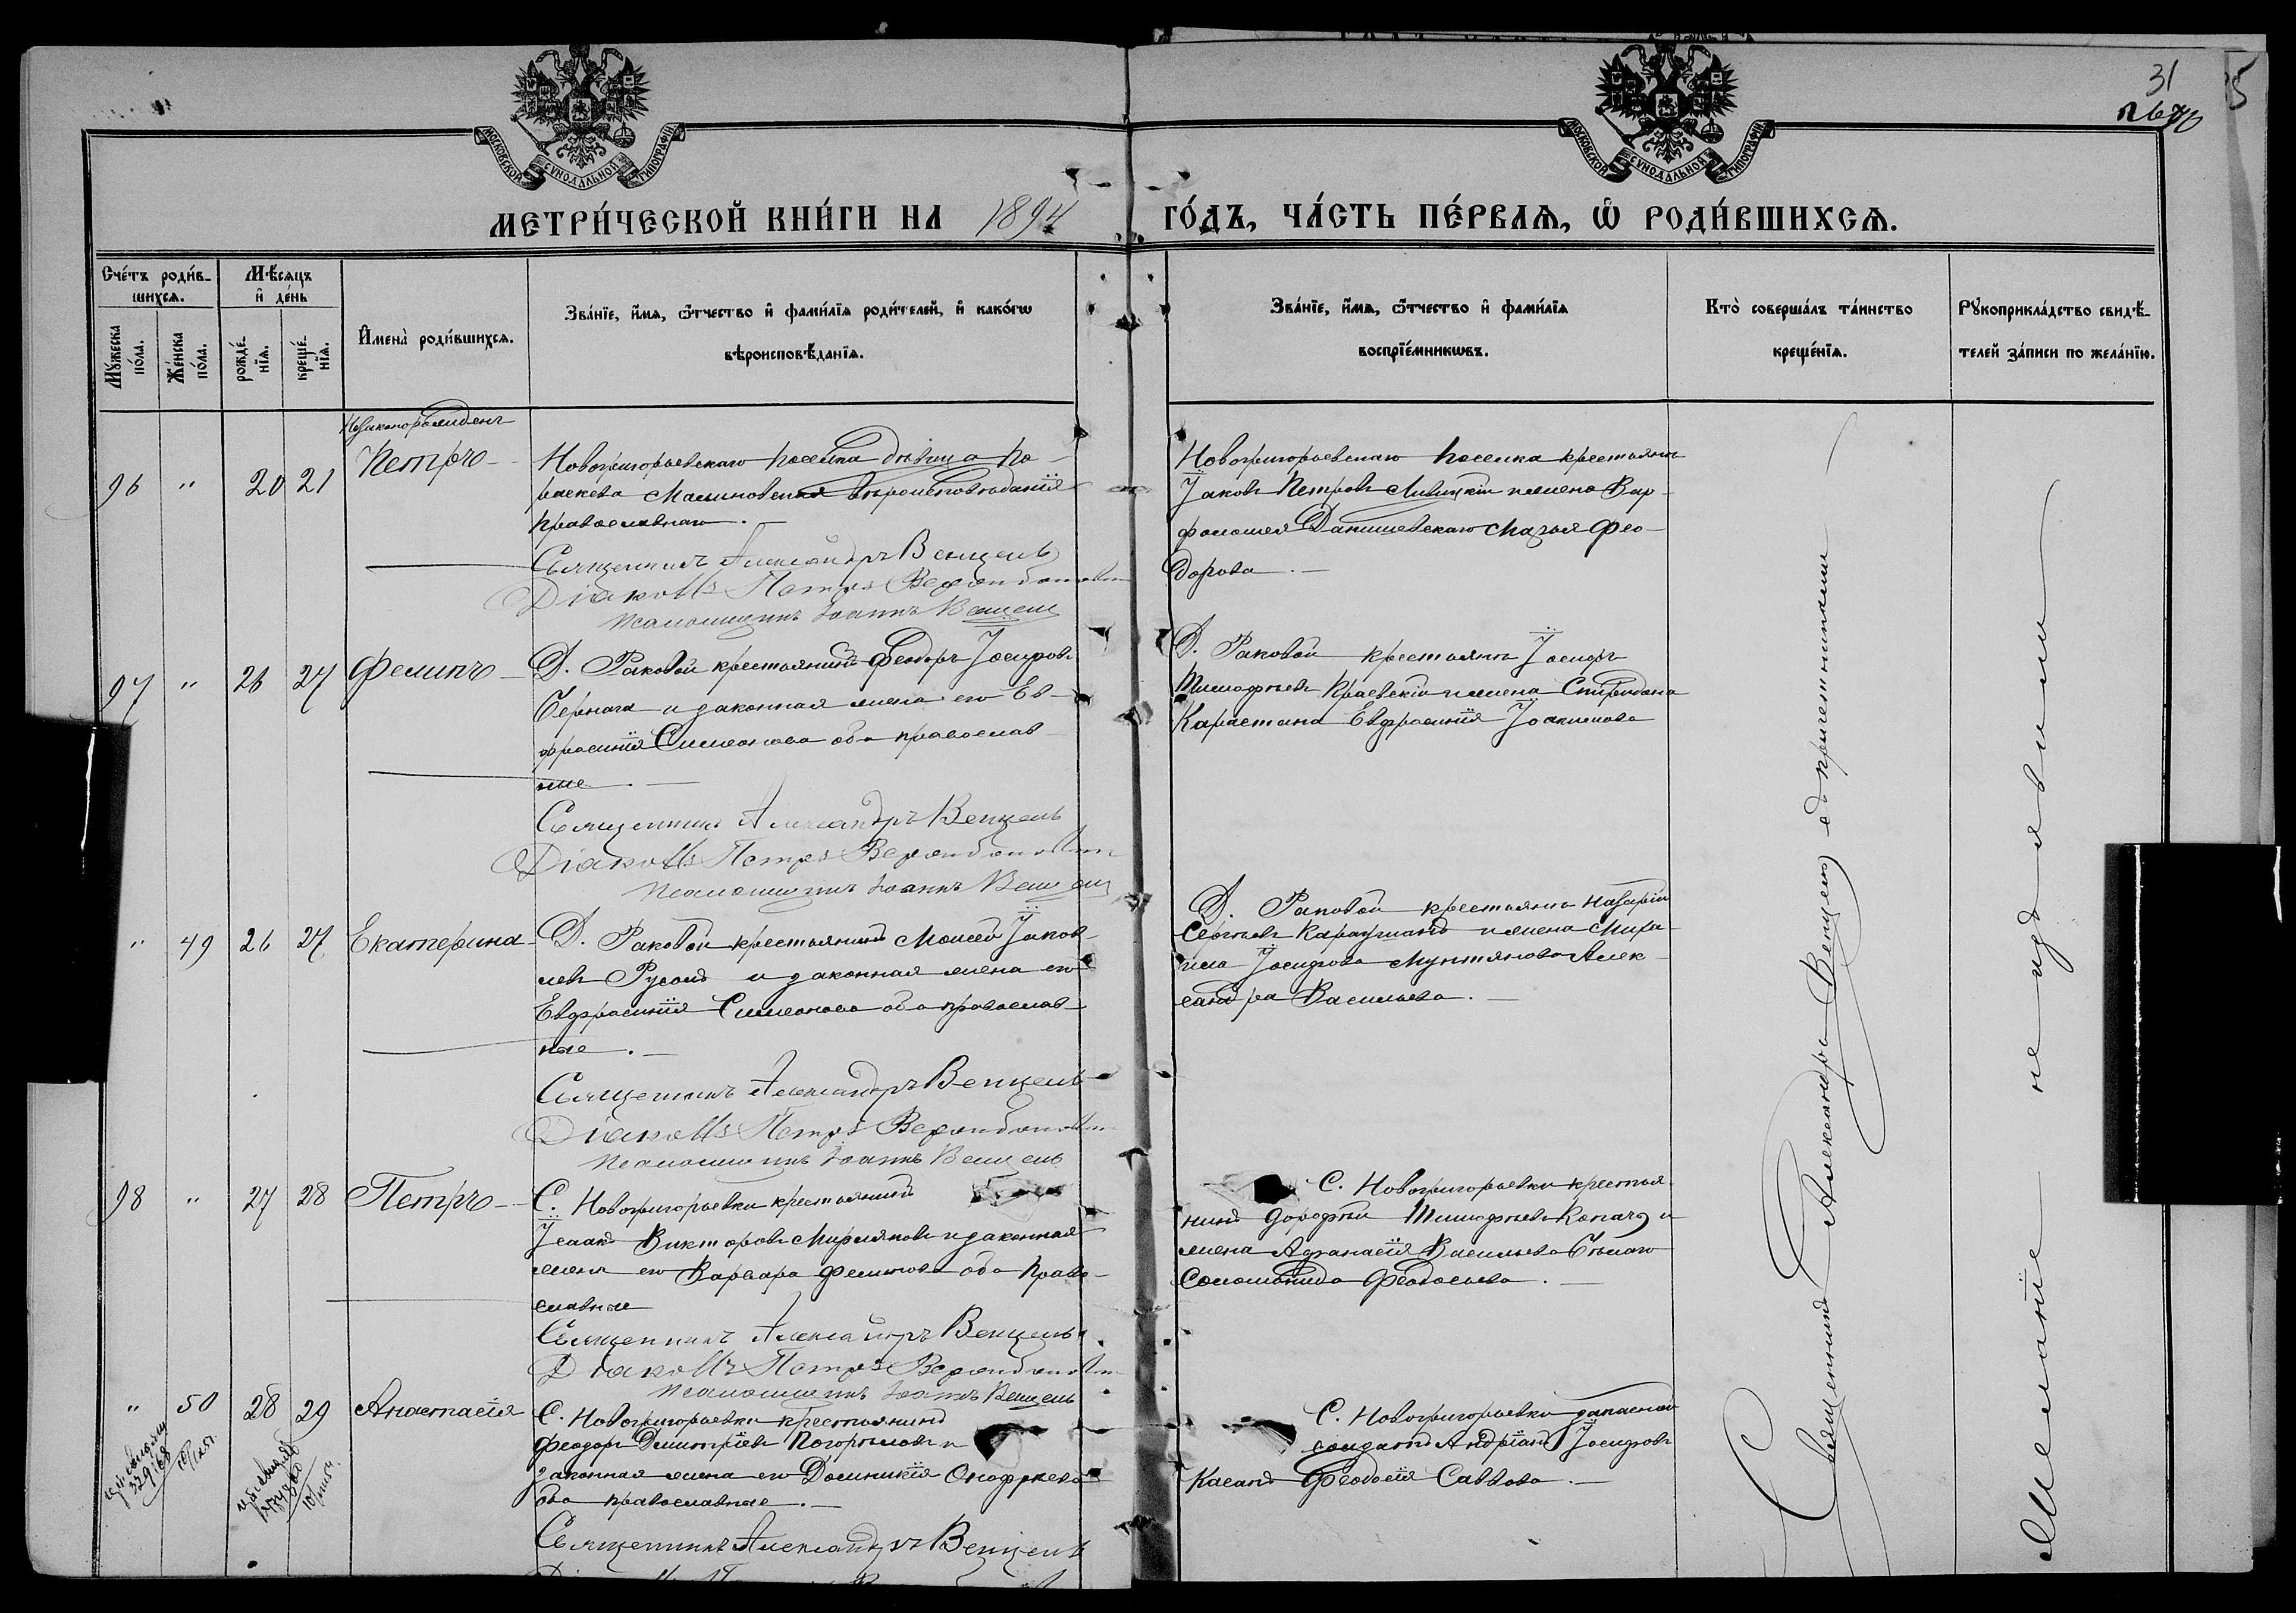 31
МОСКОВСКОЙ СѴНОДАЛЬНОЙ ТИПОГРАФІИ
МОСКОВСКОЙ СѴНОДАЛЬНОЙ ТИПОГРАФІИ
МЕТРИ́ЧЕСКОЙ КНИ́ГИ НА 1894 ГО́ДЪ, ЧА́СТЬ ПЕ́РВАѦ, Ѡ҆ РОДИ́ВШИХСѦ.
Сче́тъ роди́в-
шихсѧ.
Мꙋ́жеска по́ла.
Же́нска по́ла.
Мѣ́сѧцъ
и҆ де́нь
рожде́-
нїѧ.
креще́-
нїѧ.
И҆мена̀ роди́вшихсѧ.
Зва́нїе, и҆́мѧ, ѻ҆́тчество и҆ фами́лїѧ роди́телей, и҆ како́гѡ
вѣроисповѣ́данїѧ.
Зва́нїе, и҆́мѧ, ѻ҆́тчество и҆ фами́лїѧ
воспрїе́мникѡвъ.
Кто̀ соверша́лъ та́инство
креще́нїѧ.
Рꙋкоприкла́дство свидѣ́-
телей за́писи по жела́нїю.
Незаконорожденъ
96 " 20 21 Петръ
Новогригорьевскаго поселка дѣвица Па-
раскева Малиновская вѣроисповѣданія
православнаго.
Священникъ Александръ Венцель
Діаконъ Петръ
Псаломщикъ Іоаннъ Венцель
Новогригорьевскаго поселка крестьянин
Іаковъ Петровъ Ливицкій и жена Вар-
фоломея Данишевскаго Марья Фео-
дорова.
97 " 26 27 Филипъ
Д. Раковой крестьянинъ Феодоръ Іосифовъ
Чернага и законная жена его Ев-
фросинія Симеонова оба православ-
ные.
Священникъ Александръ Венцель
Діаконъ Петръ
Псаломщикъ Іоаннъ Венцель
Д. Раковой крестьянин Іосифъ
Тимофѣевъ Краевскій и жена Спиридона
Карастана Евфросинія Іоакимова
" 49 26 27 Екатерина
Д. Раковой крестьянинъ Моисей Іаков-
левъ Русолъ и законная жена его
Евфросинія Симеонова оба православ-
ные.
Священникъ Александръ Венцель
Діаконъ Петръ
Псаломщикъ Іоаннъ Венцель
Д. Раковой крестьянин Назарій
Сергѣевъ Караушанъ и жена Миха-
ила Іосифова Мунтянова Алек-
сандра Васильева.
98 " 27 28 Петръ
С. Новогригорьевки крестьянинъ
Ісаакъ Викторовъ Мирляновъ и законная
жена его Варвара Филипова оба право-
славные
Священникъ Александръ Венцель
Діаконъ Петръ
Псаломщикъ Іоаннъ Венцель
С. Новогригорьевки крестья-
нинъ Дорофей Тимофѣевъ Копачъ и
жена Афанасія Васильева Бѣлаго
Соломонида Феодосьева.
" 50 28 29 Анастасія
С. Новогригорьевки крестьянинъ
Феодоръ Димитріевъ Погорѣловъ и
законная жена его Домникія Онофріева
оба православные.
Священникъ Александръ Венцель
С. Новогригорьевки запасной
солдатъ Андріанъ Іосифовъ
Касанъ Феодосія Саввова.
Священникъ Александръ Венцель съ причетниками
Желаніе не изъявили